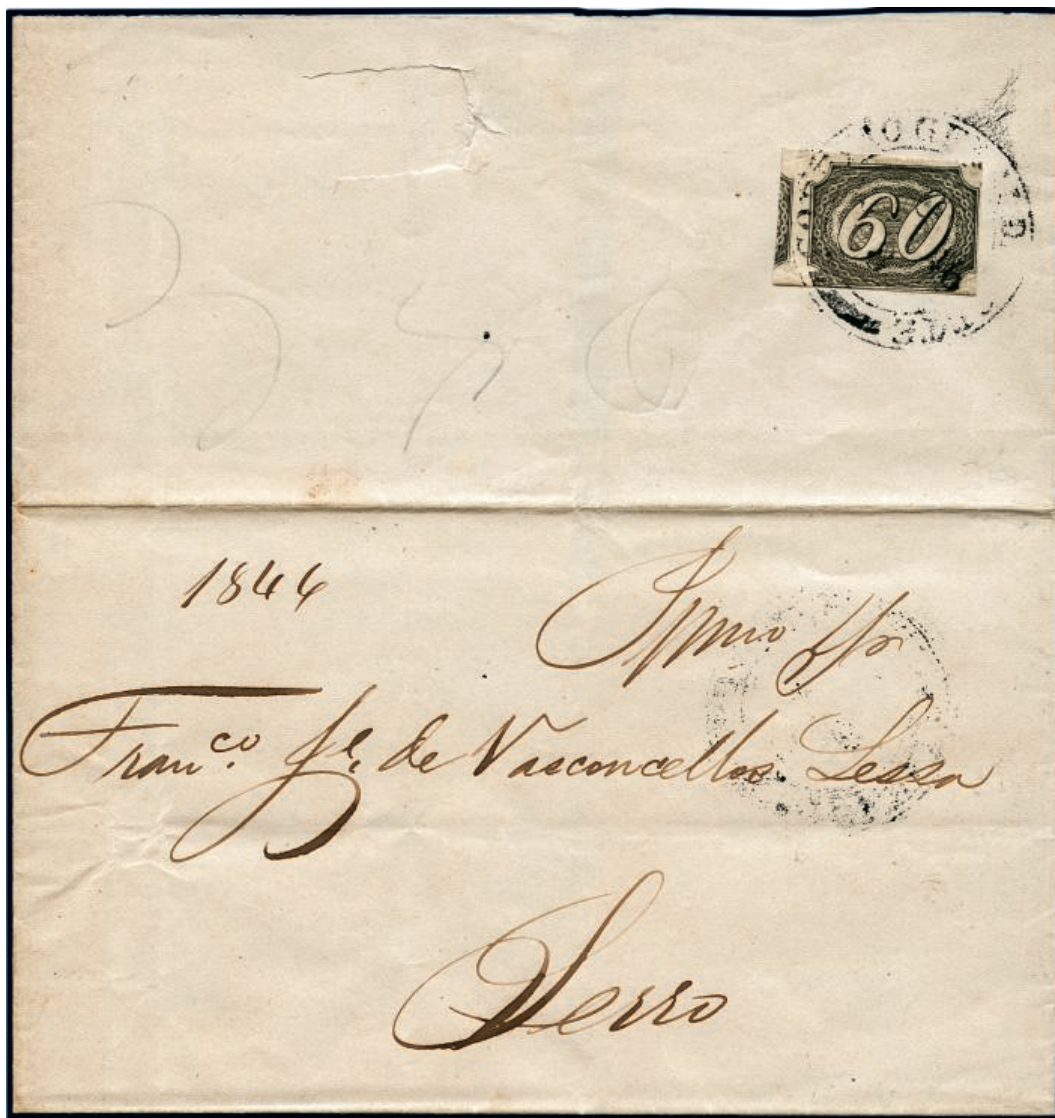 60
1844
Illmo Sr
Franco. Je. de Vasconcellos Lessa
Serro